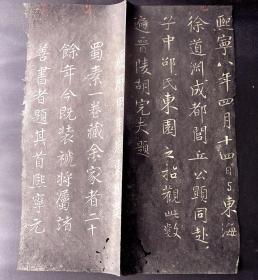 熙寧八年四月十四日與東海
徐道淵成都閭丘公顯同赴
子中邵氏東園之招觀此數
遍晉陵胡完夫題
蜀素一卷藏余家者二十
餘年今既裝褫將屬諸
善書者題其首熙寧元